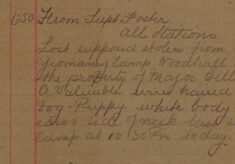 6-50 From Supt Foster
All Stations
Lost supposed stolen from
Yeomanry Camp Woodhall
the property of Major Gell
A Valuable wire haired
Dog. Puppy white body
ears & side of neck
Camp at 12/30 Pm today.